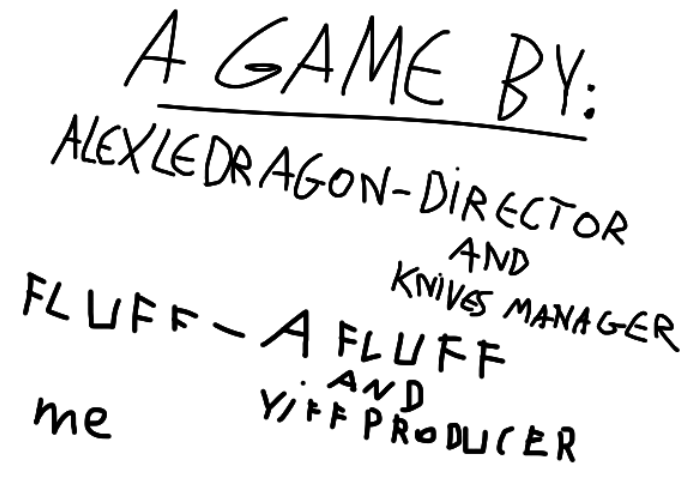 A GAME BY:
ALEXLEDRAGON-DiRECTOR
AND
KNiVES MANAGER
FLUFF-A FLUFF
AND
YiFF PRODUCER
me